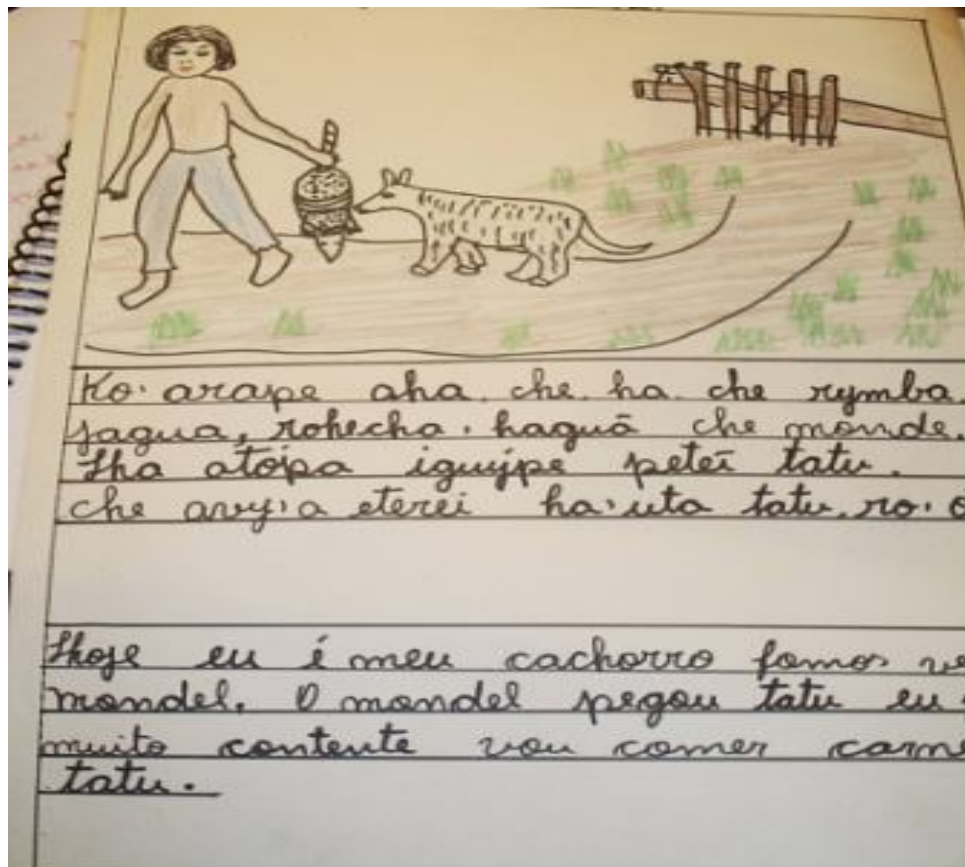 Ko' arape aha che ha che rymba
jagua, rohecha haguã che monde.
Ha atopa iguype peteĩ tatu.
che avy'a eterei ha'uta tatu ro'o
Hoje eu é meu cachorro fomos ve
mondel. O mondel pegou tatu eu
muito contente vou comer carne
tatu.